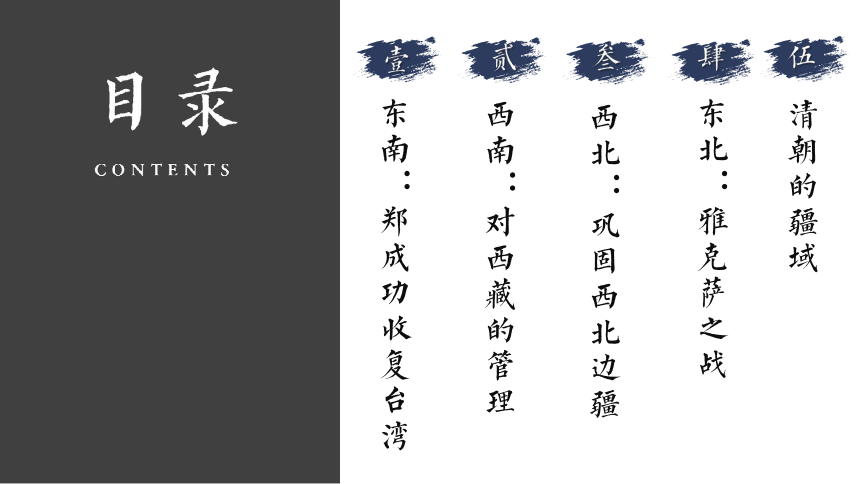 目录
CONTENTS
壹
东南：郑成功收复台湾
贰
西南：对西藏的管理
叁
西北：巩固西北边疆
肆
东北：雅克萨之战
伍
清朝的疆域